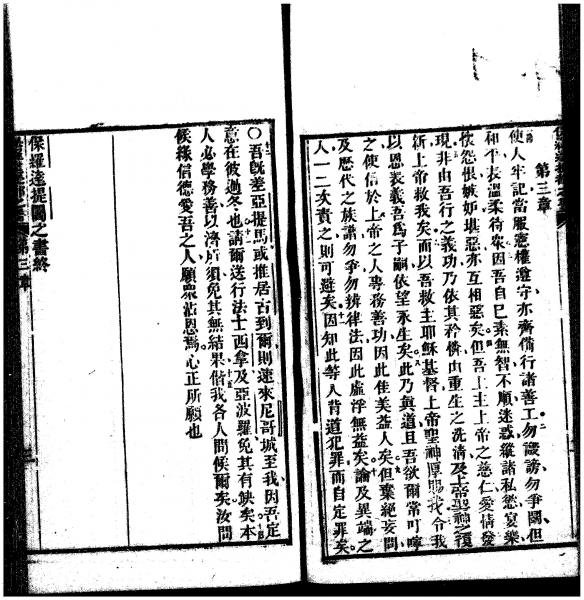 第三章
使人牢記當服憲權遵守亦齊備行諸善工勿譭謗勿爭鬭但
和平表溫柔待衆因吾自巳素無智不順迷惑縱諸私慾宴樂
懷怨恨嫉妒堪惡亦互相惡矣但吾上主上帝之慈仁愛情發
現非由吾行之義功乃依其矜憐由重生之洗淸及上帝聖神之復
新上帝救我矣而以吾救主耶穌基督上帝聖神厚賜我令我
以恩表義吾爲子嗣依望永生矣此乃眞道且吾欲爾常叮嚀
之使信於上帝之人專務善功因此佳美益人矣但棄絕妄問
及歷代之族譜勿爭勿擠律法因此虛浮無益矣論及異端之
人一二次責之則可避矣因知此等人背道犯罪而自定罪矣
〇吾旣差亞提馬或推居古到爾則速來尼哥城至我因吾定
意在彼過冬也請爾送行法士西拿及亞波羅免其有缺矣本
人必學務善以濟所須免其無結果偕我各人問候爾矣汝問
候緣信德愛吾之人願衆沾恩焉心正所願也
保羅達提閣之書終
第三章